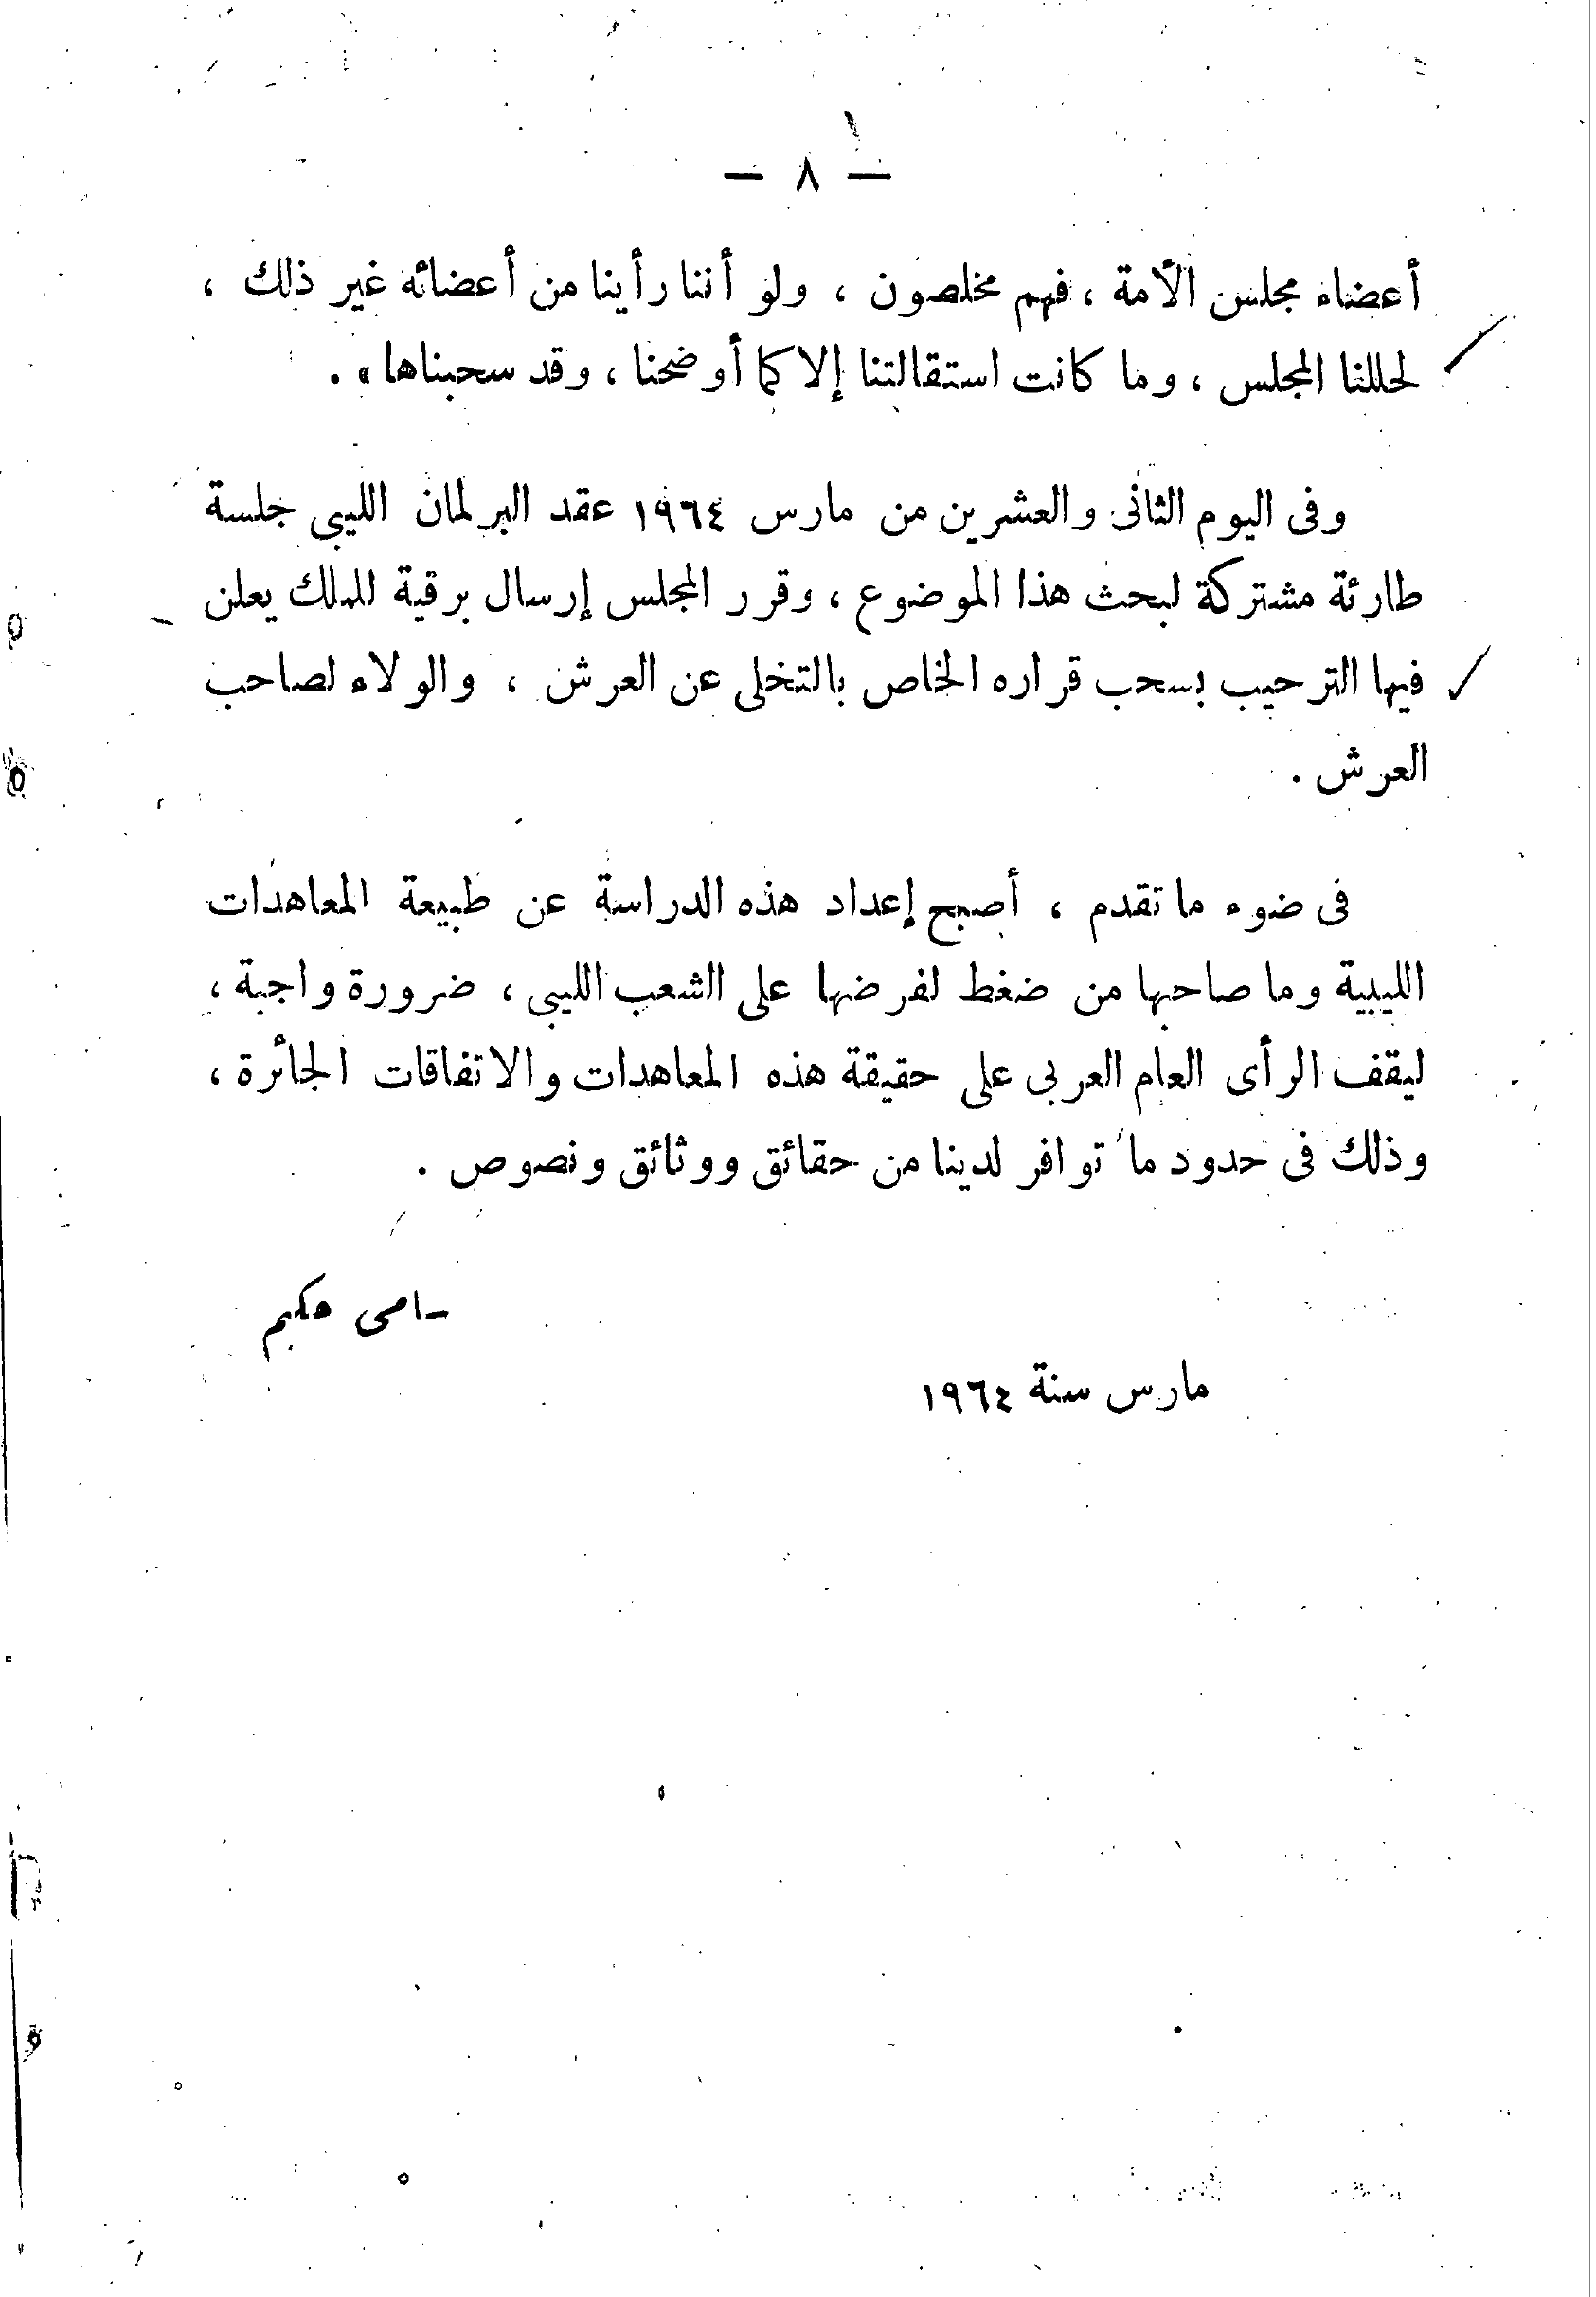 — ٨ —
أعضاء مجلس الأمة ، فهم مخلصون ، ولو أننا رأينا من أعضائه غير ذلك ،
لحللنا المجلس ، وما كانت استقالتنا إلا كما أوضحنا ، وقد سحبناها » .
وفى اليوم الثانى والعشرين من مارس ١٩٦٤ عقد البرلمان الليبي جلسة
طارئة مشتركة لبحث هذا الموضوع ، وقرر المجلس إرسال برقية للملك يعلن
فيها الترحيب بسحب قراره الخاص بالتخلى عن العرش ، والولاء لصاحب
العرش .
فى ضوء ما تقدم ، أصبح إعداد هذه الدراسة عن طبيعة المعاهدات
الليبية وما صاحبها من ضغط لفرضها على الشعب الليبي ، ضرورة واجبة ،
ليقف الرأى العام العربى على حقيقة هذه المعاهدات والاتفاقات الجائرة ،
وذلك فى حدود ما توافر لدينا من حقائق ووثائق ونصوص .
سامى حكيم
مارس سنة ١٩٦٤